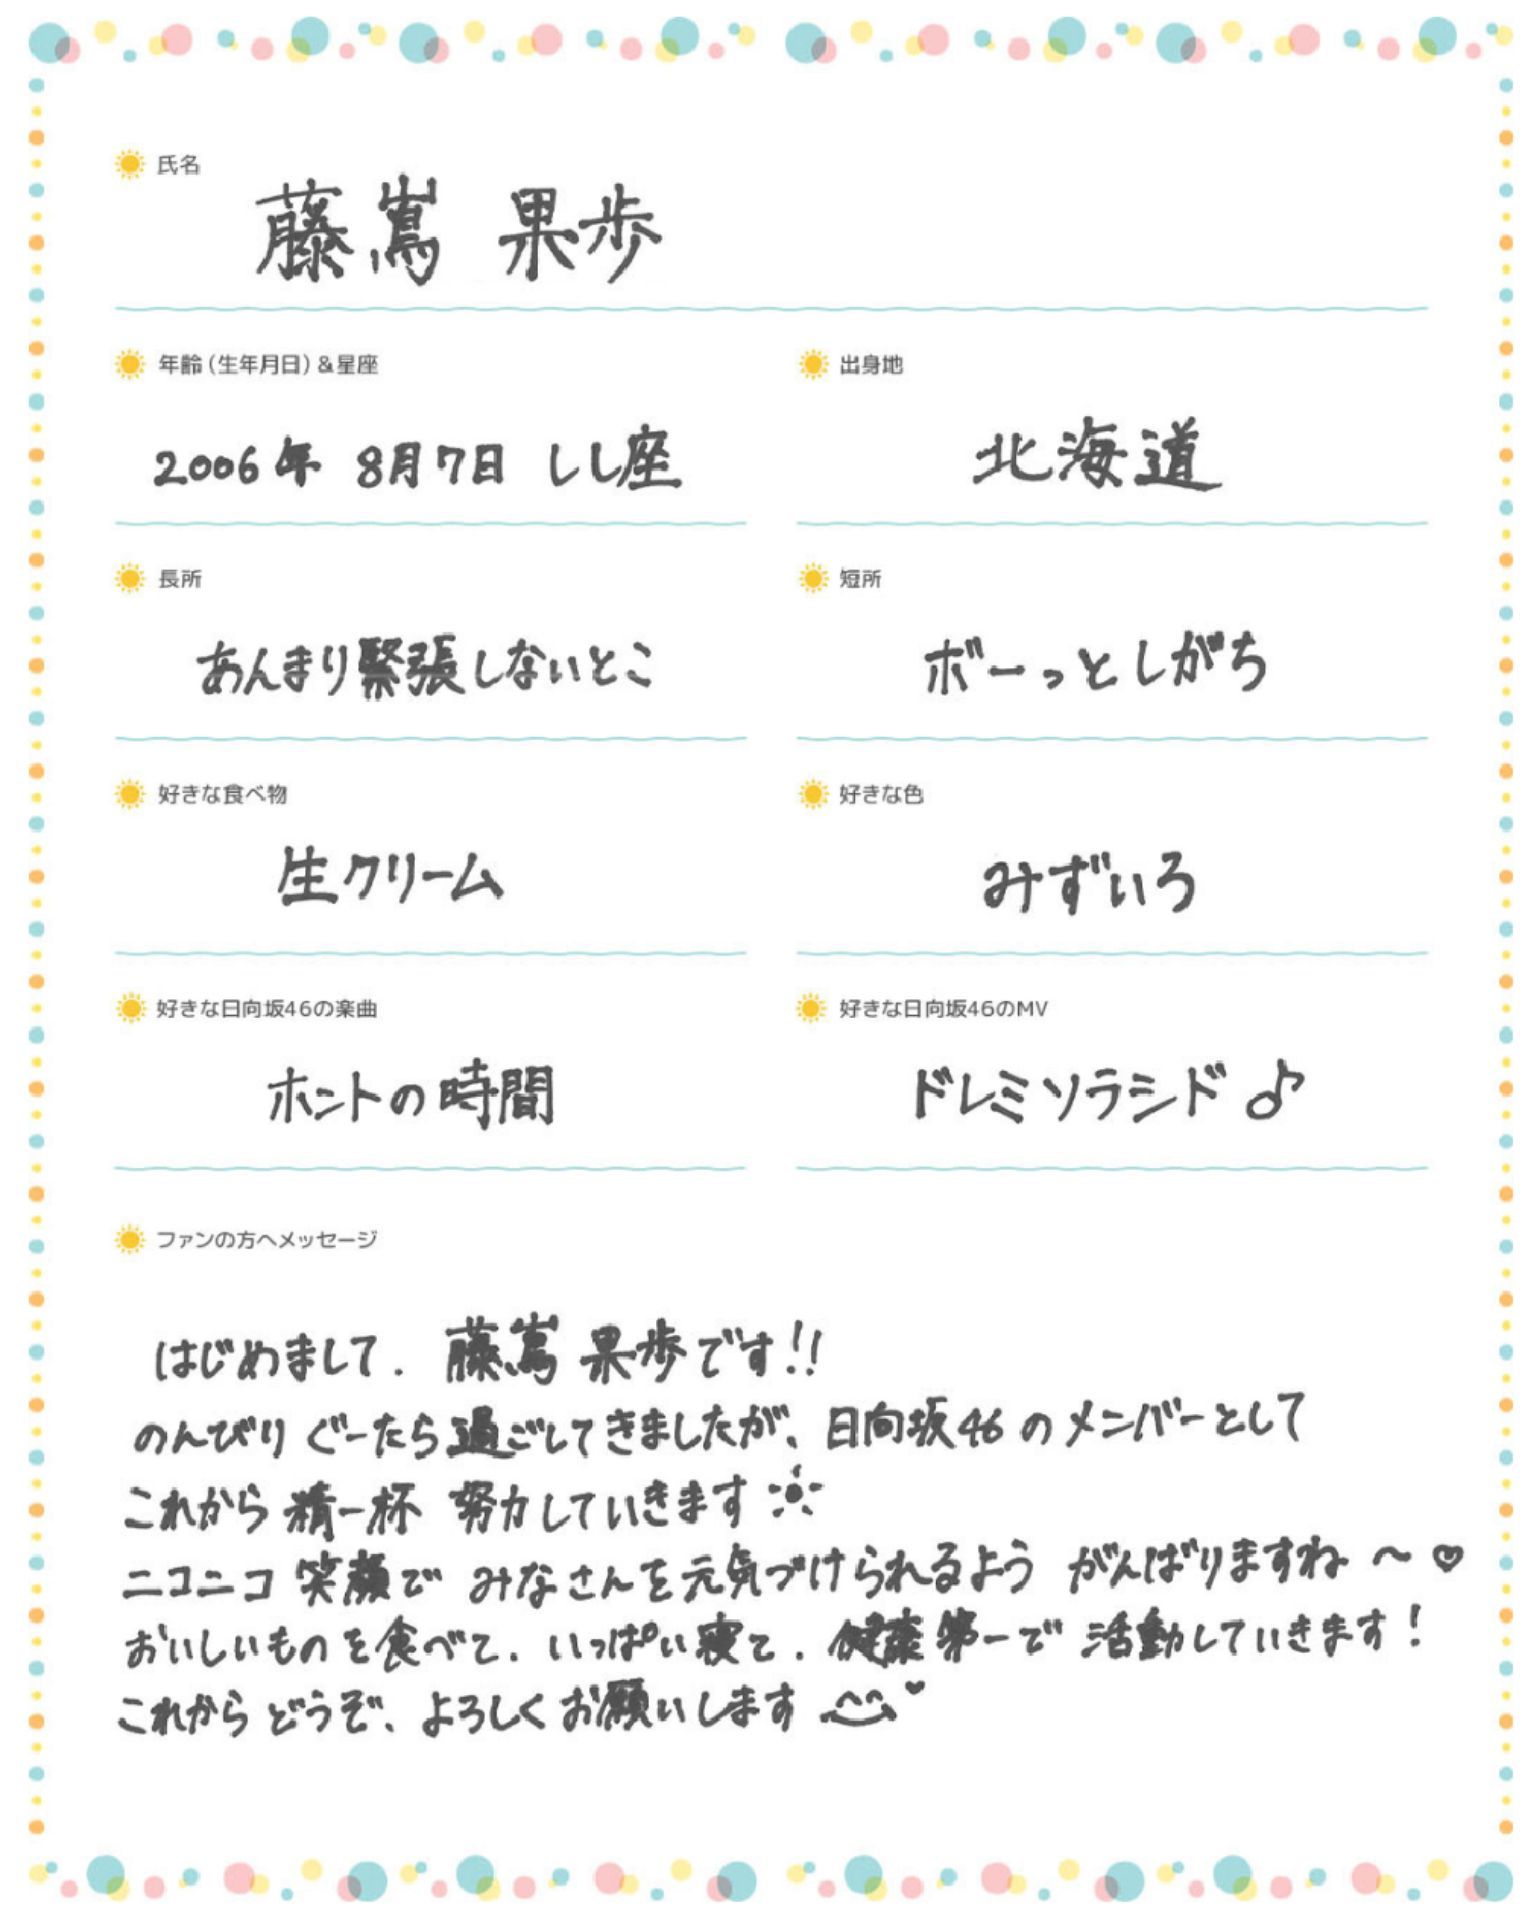 氏名
藤嶌 果歩
年齢(生年月日)&星座
2006年 8月7日 しし座
出身地
北海道
長所
あんまり緊張しないとこ
短所
ボーっとしがち
好きな食べ物
生クリーム
好きな色
みずいろ
好きな日向坂46の楽曲
ホントの時間
好きな日向坂46のMV
ドレミソラシド♪
ファンの方へメッセージ
はじめまして. 藤嶌 果歩です!!
のんびりぐーたら過ごしてきましたが、日向坂46のメンバーとして
これから精一杯 努力していきます
ニコニコ 笑顔で みなさんを元気づけられるよう がんばりますね〜♡
おいしいものを食べて. いっぱい寝て. 健康第一で 活動していきます!
これからどうぞ、よろしくお願いします